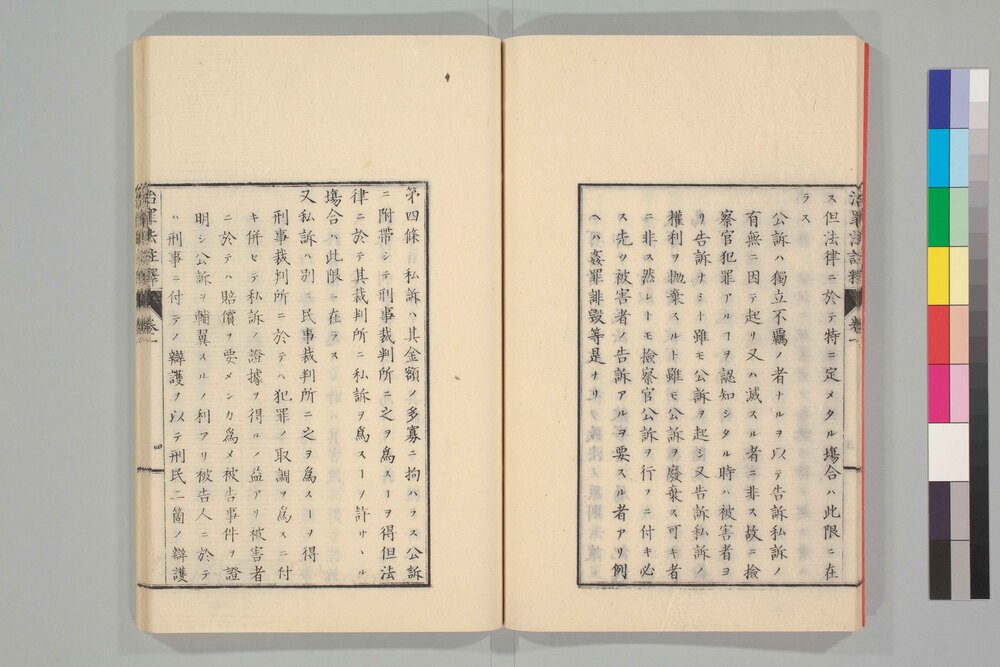 ス但法律ニ於テ特ニ定メタル塲合ハ此限ニ在
ラス
公訴ハ獨立不羈ノ者ナルヲ以テ告訴私訴ノ
有無ニ因テ起リ又ハ滅スル者ニ非ス故ニ撿
察官犯罪アルヿヲ認知シタル時ハ被害者ヨ
リ告訴ナシト雖モ公訴ヲ起シ又告訴私訴ノ
權利ヲ抛棄スルト雖モ公訴ヲ廢棄ス可キ者
ニ非ス然レトモ撿察官公訴ヲ行フニ付キ必
ス先ツ被害者ノ告訴アルヲ要スル者アリ例
ヘハ姦罪誹毀等是ナリ
治罪法註釋 卷一
第四條 私訴ハ其金額ノ多寡ニ拘ハラス公訴
ニ附帶シテ刑事裁判所ニ之ヲ爲スヿヲ得但法
律ニ於テ其裁判所ニ私訴ヲ爲スヿヲ許サヽル
塲合ハ此限ニ在ラス
又私訴ハ別ニ民事裁判所ニ之ヲ爲スヿヲ得
刑事裁判所ニ於テハ犯罪ノ取調ヲ爲スニ付
キ併セテ私訴ノ證據ヲ得ルノ益アリ被害者
ニ於テハ賠償ヲ要メンカ爲メ被告事件ヲ證
明シ公訴ヲ輔翼スルノ利アリ被告人ニ於テ
ハ刑事ニ付テノ辯護ヲ以テ刑民二箇ノ辯護
治罪法註釋 卷一 四